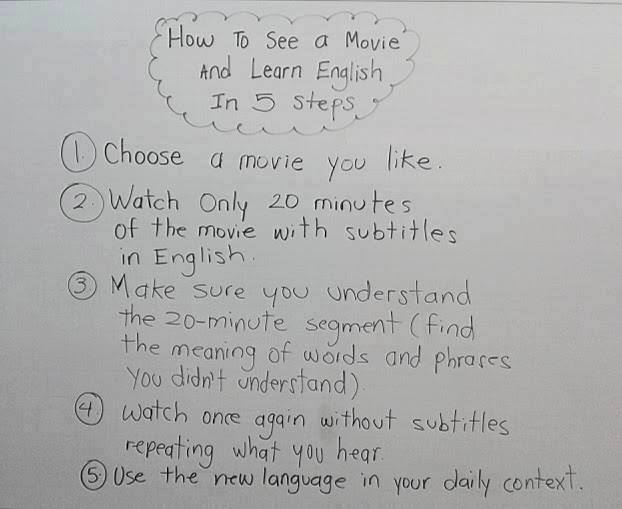 How To See a Movie
And Learn English
In 5 steps
1. Choose a movie you like.
2. Watch Only 20 minutes
of the movie with subtitles
in English.
3. Make sure you understand
the 20-minute segment (find
the meaning of words and phrases
you didn't understand).
4. Watch once again without subtitles
repeating what you hear.
5. Use the new language in your daily context.